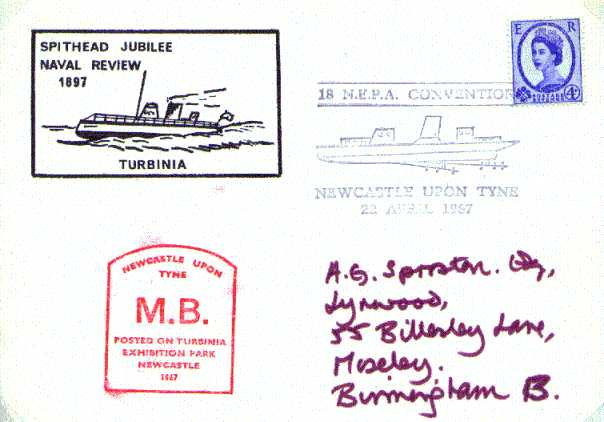 SPITHEAD JUBILEE
NAVAL REVIEW
1897
TURBINIA
E R
POSTAGE
REVENUE
4D
18 N.E.P.A. CONVENTION
NEWCASTLE UPON TYNE
22 APRIL 1967
NEWCASTLE UPON
TYNE
M.B.
POSTED ON TURBINIA
EXHIBITION PARK
NEWCASTLE
1967
A.G. Sproston. Esq,
Lynwood,
55 Billesley Lane,
Moseley.
Birmingham B.